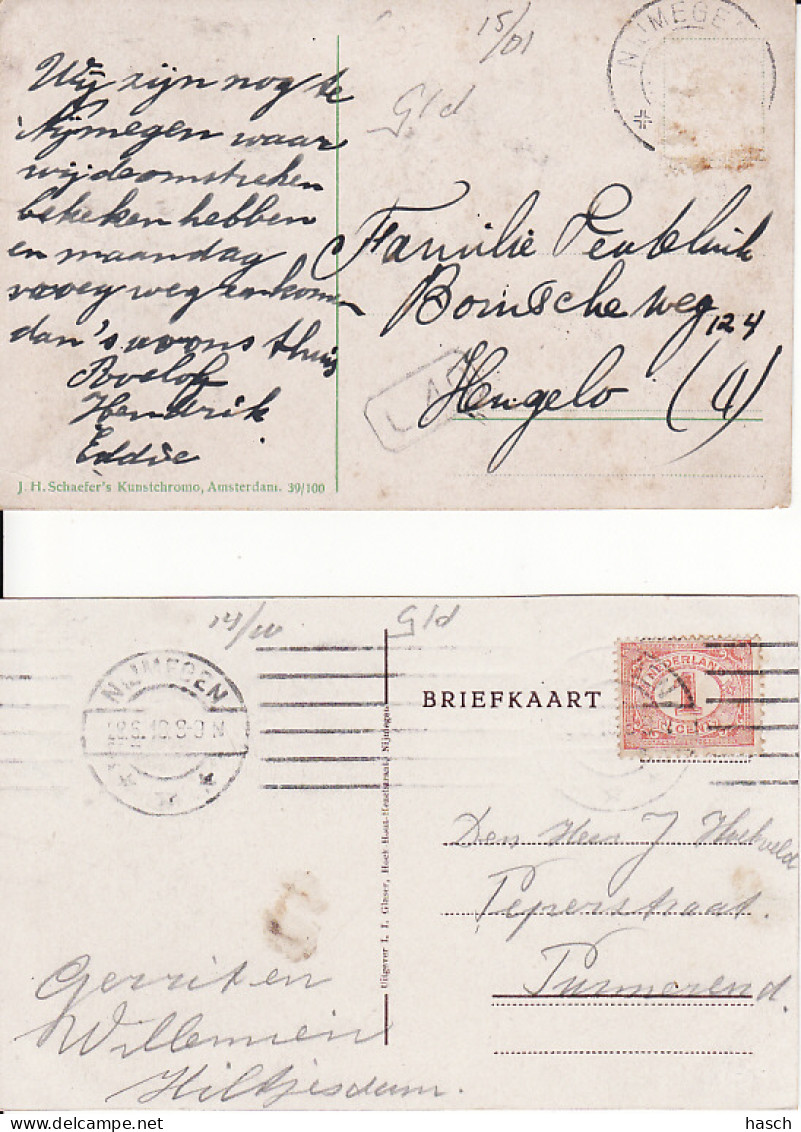 15/01
Gld
NIJMEGEN
Wij zijn nog te
Nijmegen waar
wij de omstreken
bekeken hebben
en maandag
vroeg weg en komen
dan 's avons thuis
Roelof
Hendrik
Eddie
Familie
Bornsche weg 124
Hengelo (4)
J. H. Schaefer's Kunstchromo, Amsterdam. 39/100
14/10
Gld
NIJMEGEN
8-9 N
BRIEFKAART
NEDERLAND
1
CENT
Uitgever I. I. Glaser, Hoek Houtmarkt, Nijmegen
Den Heer J Hoekveld
Peperstraat.
Purmerend.
Gerrit en
Willemien
Hiltjesdam.
hasch